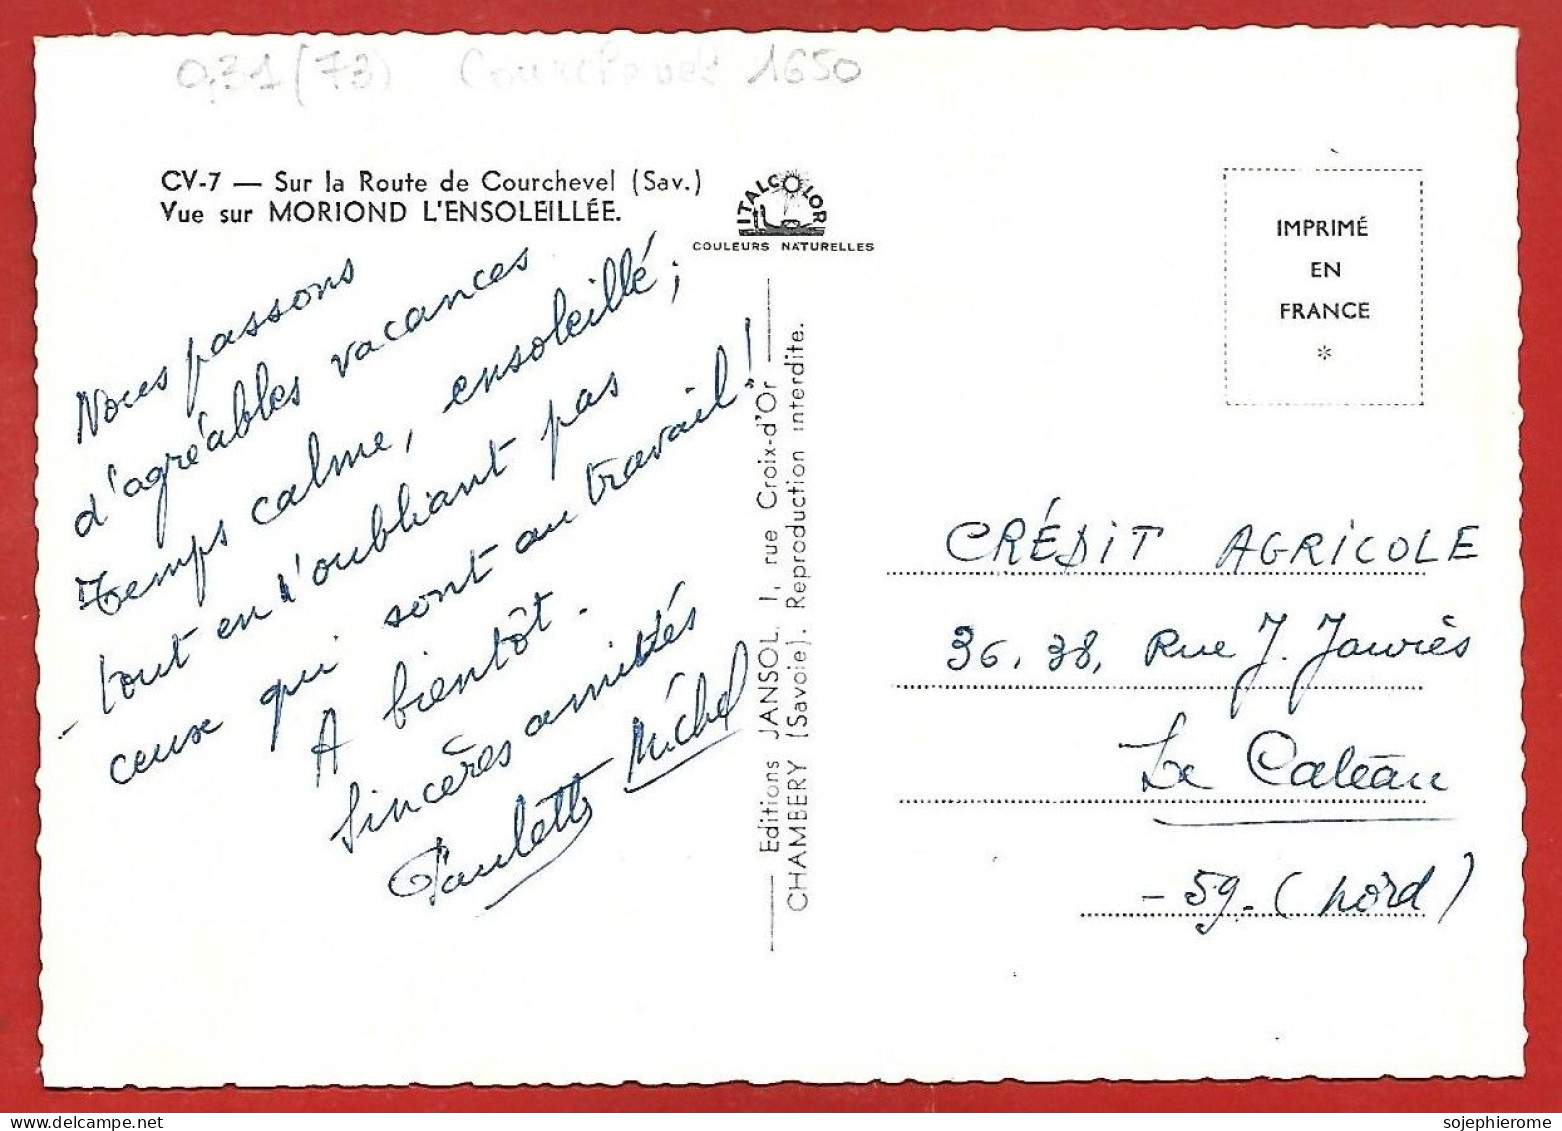 0,31 (73) Courchevel 1650
CV-7 — Sur la Route de Courchevel (Sav.)
Vue sur MORIOND L'ENSOLEILLÉE.
ITALCOLOR
COULEURS NATURELLES
IMPRIMÉ
EN
FRANCE
*
Nous passons
d'agréables vacances
Temps calme, ensoleillé ;
tout en n'oubliant pas
- ceux qui sont au "travail" !
A bientôt.
Sincères amitiés
Paulette Michel
Editions JANSOL, 1, rue Croix-d'Or
CHAMBERY (Savoie). Reproduction interdite.
CRÉDIT AGRICOLE
36.38, Rue J. Jaurès
Le Cateau
- 59 - (nord)
sojephierome